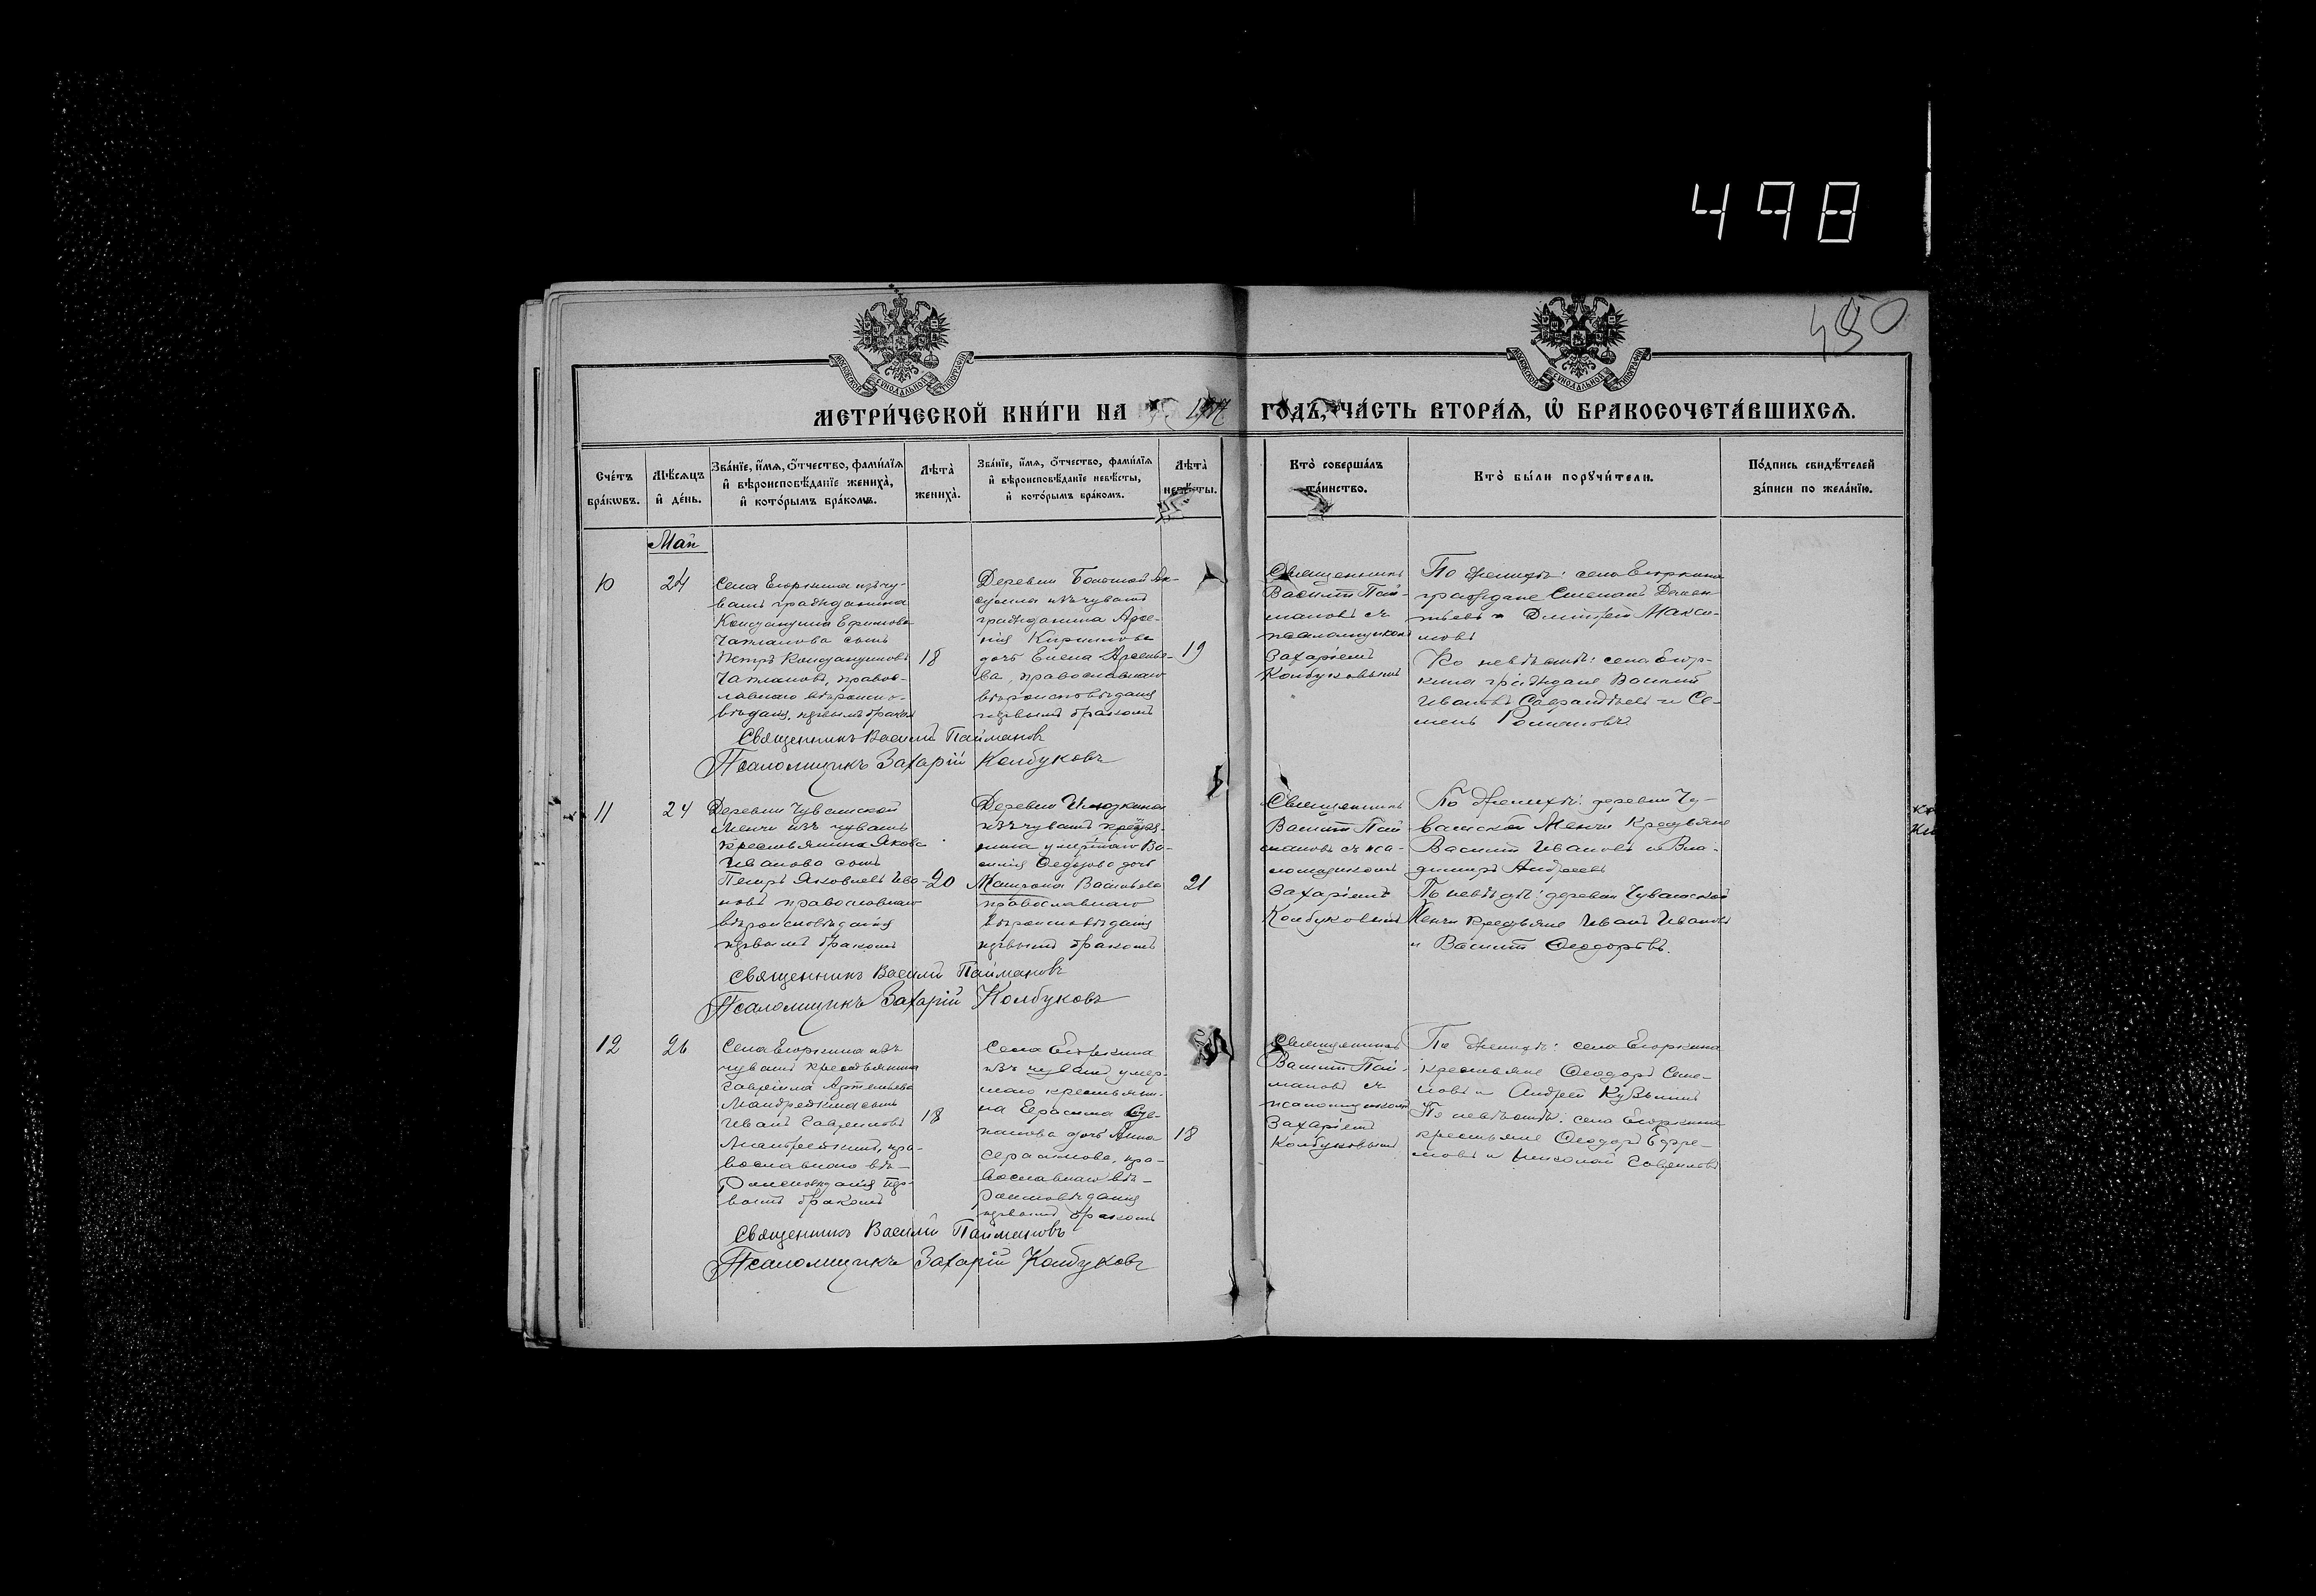 498
490
МОСКОВСКОЙ СѴНОДАЛЬНОЙ ТИПОГРАФІИ
МОСКОВСКОЙ СѴНОДАЛЬНОЙ ТИПОГРАФІИ
МЕТРИ́ЧЕСКОЙ КНИ́ГИ НА 1917 ГО́ДЪ, ЧА́СТЬ ВТОРА́Ѧ, Ѡ҆ БРАКОСОЧЕТА́ВШИХСѦ.
Сче́тъ бра́кѡвъ.
Мѣ́сѧцъ и҆ де́нь.
Зва́нїе, и҆́мѧ, о҆́тчество, фами́лїѧ
и҆ вѣроисповѣ́данїе жениха̀,
и҆ кото́рымъ бра́комъ.
Лѣта̀ жениха̀.
Зва́нїе, и҆́мѧ, о҆́тчество, фами́лїѧ
и҆ вѣроисповѣ́данїе невѣ́сты,
и҆ кото́рымъ бра́комъ.
Лѣта̀ невѣ́сты.
Кто̀ соверша́лъ
та́инство.
Кто̀ бы́ли порꙋчи́тели.
По́дпись свидѣ́телей
за́писи по жела́нїю.
Май
10
24
Села Егоркина изъ чу-
вашъ гражданина
Константина Ефимова
Чапланова сынъ
Петръ Константиновъ
Чаплановъ, правос-
лавнаго вѣроиспо-
вѣданія, первымъ бракомъ
18
Деревни Большой
изъ чувашъ
гражданина Арсе-
нія Кирилова
дочь Елена Арсенье-
ва, православнаго
вѣроисповѣданія
первымъ бракомъ
19
Священникъ
Василій Пай-
мановъ съ
псаломщикомъ
Захаріемъ
Колбуковымъ
По женихѣ: села Егоркина
граждане Степанъ Демен-
тьевъ и Дмитрій Макси-
мовъ
По невѣстѣ: села Егор-
кина граждане Василій
Ивановъ и Се-
менъ Романовъ
Священникъ Василій Паймановъ
Псаломщикъ Захарій Колбуковъ
11
24
Деревни Чувашской
Менчи изъ чувашъ
крестьянина Якова
Иванова сынъ
Петръ Яковлевъ Ива-
новъ православнаго
вѣроисповѣданія
первымъ бракомъ
20
Деревни
изъ чувашъ крестья-
нина умершаго Ва-
силія Ѳедорова дочь
Матрона Васильева
православнаго
вѣроисповѣданія
первымъ бракомъ
21
Священникъ
Василій Пай
мановъ съ пса-
ломщикомъ
Захаріемъ
Колбуковымъ
По женихѣ: деревни Чу-
вашской Менчи крестьяне
Василій Ивановъ и Вла-
димиръ Андреевъ
По невѣстѣ: деревни Чувашской
Менчи крестьяне Иванъ Ивановъ
и Василій Ѳеодоровъ.
Священникъ Василій Паймановъ
Псаломщикъ Захарій Колбуковъ
12
26
Села Егоркина изъ
чувашъ крестьянина
Гавріила Артемьева
сынъ
Иванъ Гавриловъ
пра-
вославнаго вѣ-
роисповѣданія пер-
вымъ бракомъ
18
Села Егоркина
изъ чувашъ умер-
шаго крестьяни-
на Герасима Сте-
панова дочь Анна
Герасимова, пра-
вославнаго вѣ-
роисповѣданія
первымъ бракомъ
18
Священникъ
Василій Пай-
мановъ съ
псаломщикомъ
Захаріемъ
Колбуковымъ
По женихѣ: села Егоркина
крестьяне Ѳеодоръ Семе-
новъ и Андрей Кузьминъ
По невѣстѣ: села Егоркина
крестьяне Ѳеодоръ Ефре-
мовъ и Николай Гавриловъ
Священникъ Василій Паймановъ
Псаломщикъ Захарій Колбуковъ